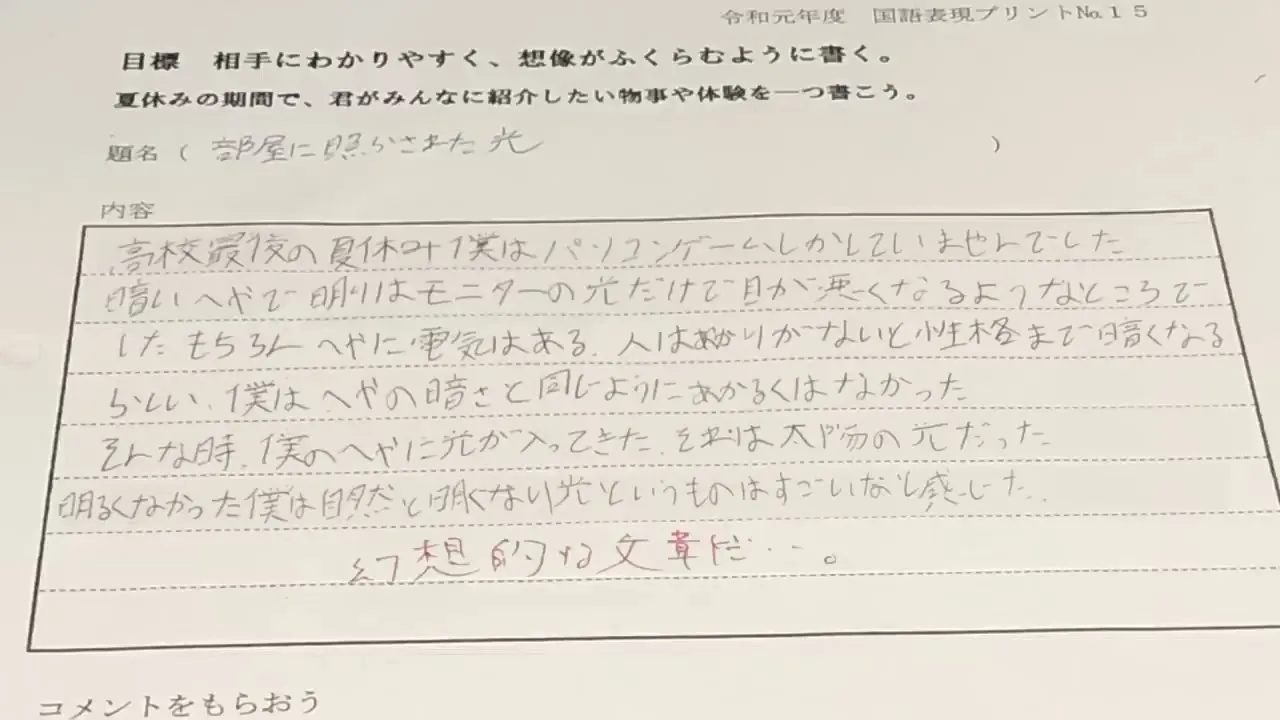 令和元年度 国語表現プリント№15
目標 相手にわかりやすく、想像がふくらむように書く。
夏休みの期間で、君がみんなに紹介したい物事や体験を一つ書こう。
題名( 部屋に照らされた光 )
内容
高校最後の夏休み僕はパソコンゲームしかしていませんでした
暗いへやで明りはモニターの光だけで目が悪くなるようなところで
したもちろんへやに電気はある、人は あかりがないと性格まで暗くなる
らしい、僕はへやの暗さと同じようにあかるくはなかった
そんな時、僕のへやに光が入ってきた、それは太陽の光だった
明るくなかった僕は自然と明くない光というものはすごいなと感じた、
幻想的な文章だ…。
コメントをもらおう